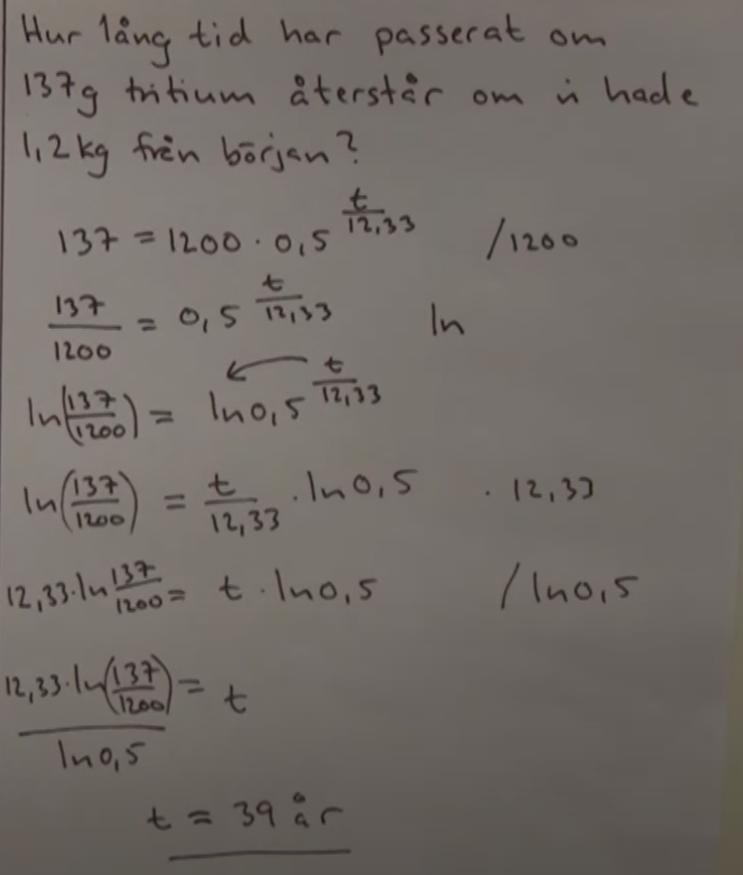 Hur lång tid har passerat om
137g tritium återstår om vi hade
1,2kg från början?
137 = 1200 · 0,5^(t/12,33) /1200
137/1200 = 0,5^(t/12,33) ln
ln(137/1200) = ln0,5^(t/12,33)
ln(137/1200) = t/12,33 · ln0,5 · 12,33
12,33·ln 137/1200 = t · ln0,5 /ln0,5
12,33·ln(137/1200)/ln0,5 = t
t = 39 år